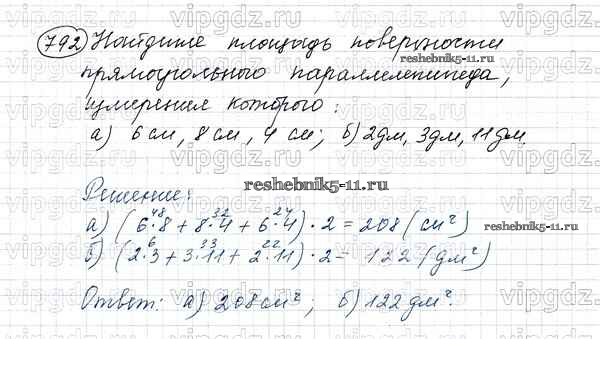 792 Найдите площадь поверхности
прямоугольного параллелепипеда,
измерения которого:
а) 6 см, 8 см, 4 см; б) 2 дм, 3 дм, 11 дм.
Решение:
а) (6·8 + 8·4 + 6·4) · 2 = 208 (см²)
48 32 24
б) (2·3 + 3·11 + 2·11) · 2 = 122 (дм²)
6 33 22
Ответ: а) 208 см²; б) 122 дм².
reshebnik5-11.ru
reshebnik5-11.ru
reshebnik5-11.ru
vipgdz.com